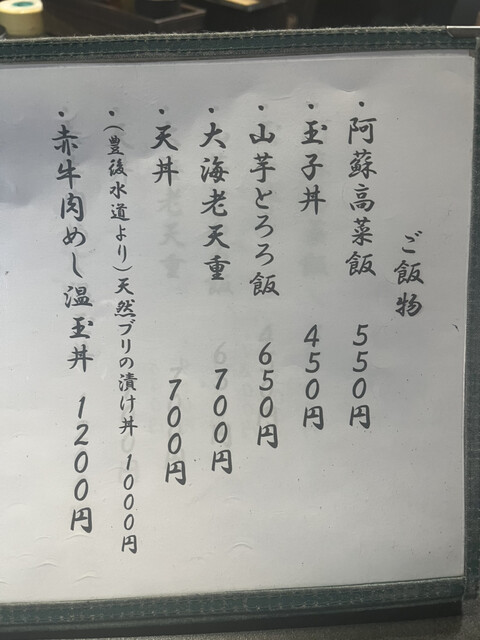 ご飯物
・阿蘇高菜飯 550円
・玉子丼 450円
・山芋とろろ飯 650円
・大海老天重 700円
・天丼 700円
・(豊後水道より)天然ブリの漬け丼 1000円
・赤牛肉めし温玉丼 1200円